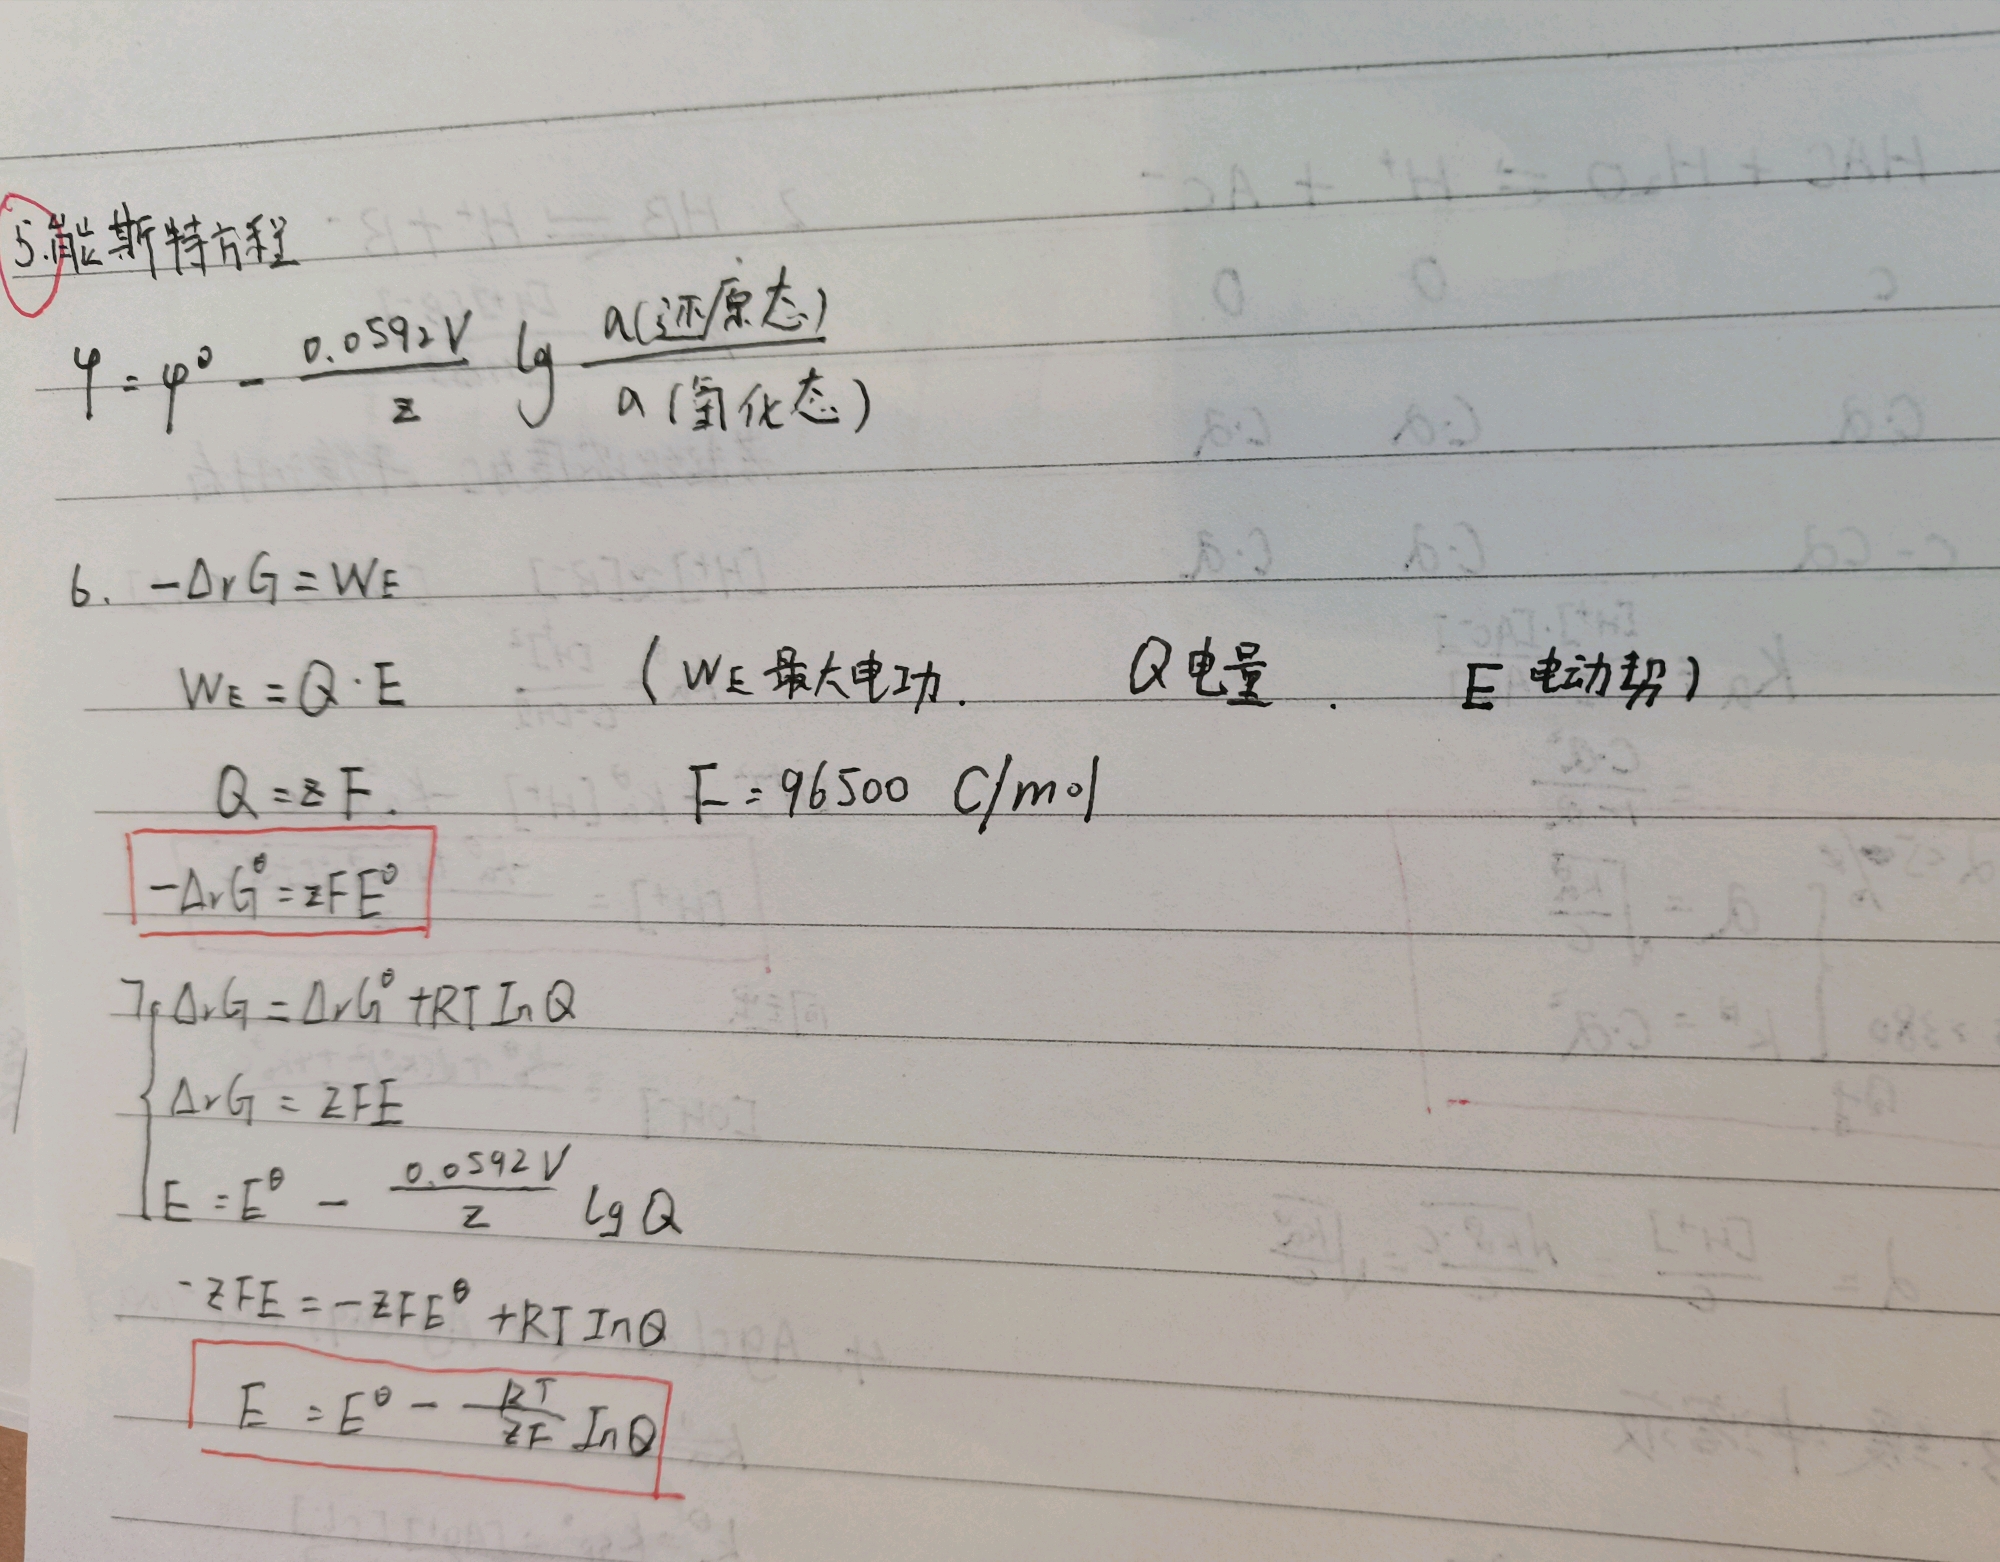 5.能斯特方程
φ = φ^θ - 0.0592V/z lg a(还原态)/a(氧化态)
6. -ΔrG = WE
WE = Q·E (WE 最大电功. Q 电量. E 电动势)
Q = zF. F = 96500 C/mol
-ΔrG^θ = zFE^θ
7. ΔrG = ΔrG^θ + RT InQ
ΔrG = zFE
E = E^θ - 0.0592V/z lgQ
-zFE = -zFE^θ + RT InQ
E = E^θ - RT/zF InQ